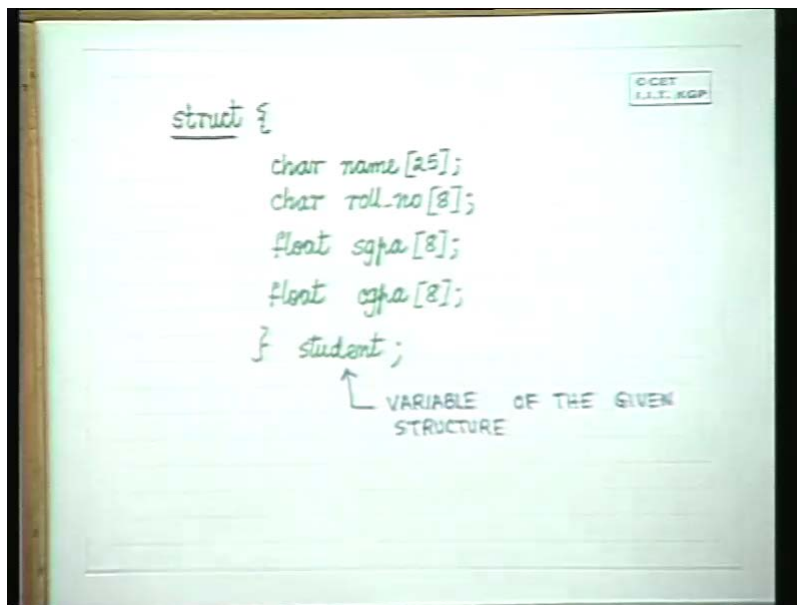 © CET
I.I.T. KGP
struct {
char name [25];
char roll_no [8];
float sgpa [8];
float cgpa [8];
} student ;
VARIABLE OF THE GIVEN
STRUCTURE